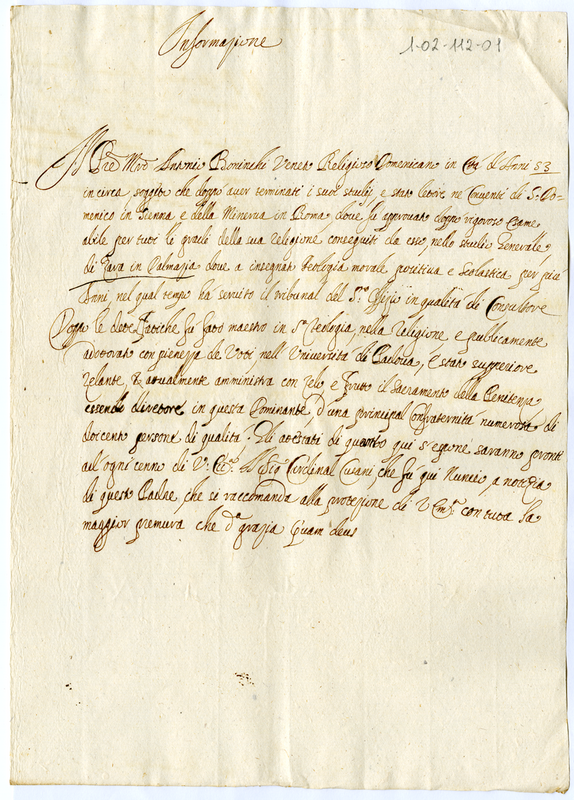 Informazione
1-02-112-01
Il Pre Mro Antonio Rovinelli Veneto Religioso Domenicano in Età d'Anni 53
in circa, sogetto che doppo aver terminati i suoi studii, è stato letore ne Conventi di S: Do-
menico in Sienna e della Minerva in Roma, dove fù approvato doppo rigoroso Esame
abile per tuti li gradi della sua religione conseguiti da esso, nello studio Generale
di Zara in Dalmazia dove a insegnato teologia morale, positiva e scolastica per più
Anni, nel qual tempo hà servito il tribunal del St.o Offizio in qualità di Consultore
Doppo le dete fatiche fu fato maestro in Sa teologia, nella religione e publicamente
adotorato con pienezza de Voti nell'Università di Padova, È stato superiore
zelante, & attualmente amministra con zelo e frutto il Sacramento della Penitenza
essendo diretore in questa Dominante d'una principal Confraternità numerosa di
doicento persone di qualità. Gli atestati di quanto qui s'espone saranno pronti
ad ogni cenno di V: Em: Il Sig: Cardinal Cusani, che fu qui Nuncio, a notizia
di questo Padre, che si raccomanda alla protezione di V Em: con tuta la
maggior premura che da grazia Quam deus